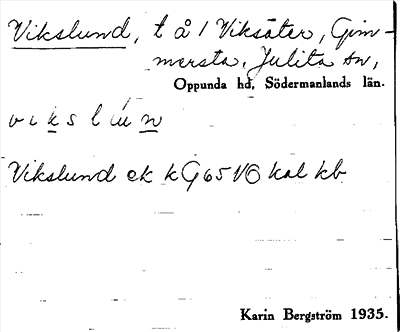 Vikslund, t å 1 Viksäter, Gim-
mersta, Julita sn,
Oppunda hd, Södermanlands län.
v i k s l ú n
Vikslund ek k G 65 VO kal kb
Karin Bergström 1935.